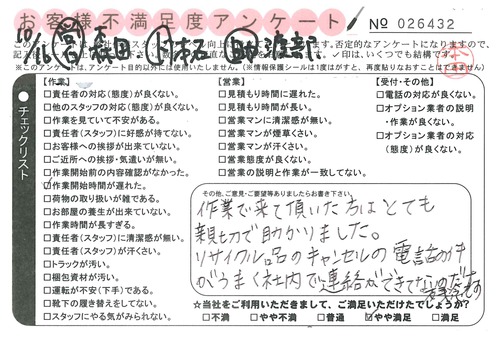 お客様不満足度アンケート
No 026432
※このアンケートは、アンケート目的以外には使用いたしません。(※情報保護シールは1度はがすと、再度貼りなおすことはできません。)
チェックリスト
【作業】
□責任者の対応(態度)が良くない。
□他のスタッフの対応(態度)が良くない。
□作業を見ていて不安がある。
□責任者(スタッフ)に好感が持てない。
□お客様への挨拶が出来ていない。
□ご近所への挨拶・気遣いが無い。
□作業開始前の内容確認がなかった。
☑作業開始時間が遅れた。
□荷物の取り扱いが雑である。
□お部屋の養生が出来ていない。
□作業時間が長すぎる。
□責任者(スタッフ)に清潔感が無い。
□責任者(スタッフ)が汗くさい。
□トラックが汚い。
□梱包資材が汚い。
□運転が不安(下手)である。
□靴下の履き替えをしてない。
□スタッフにやる気がみられない。
【営業】
□見積もりに遅れた。
□見積もり時間が長い。
□営業マンに清潔感が無い。
□営業マンが煙草くさい。
□営業マンが汗くさい。
□営業態度が良くない。
□営業の説明と作業が一致してない。
【受付・その他】
□電話の対応が良くない。
□オプション業者の説明
・作業が良くない。
□オプション業者の対応
(態度)が良くない。
その他、ご意見・ご要望等ありましたらお書き下さい。
作業で来て頂いた方はとても
親切で助かりました。
リサイクル品のキャンセルの電話の件
がうまく社内で連絡ができてないのだけ
☆当社をご利用いただきまして、ご満足いただけたでしょうか?
□不満 □やや不満 □普通 ☑やや満足 □満足